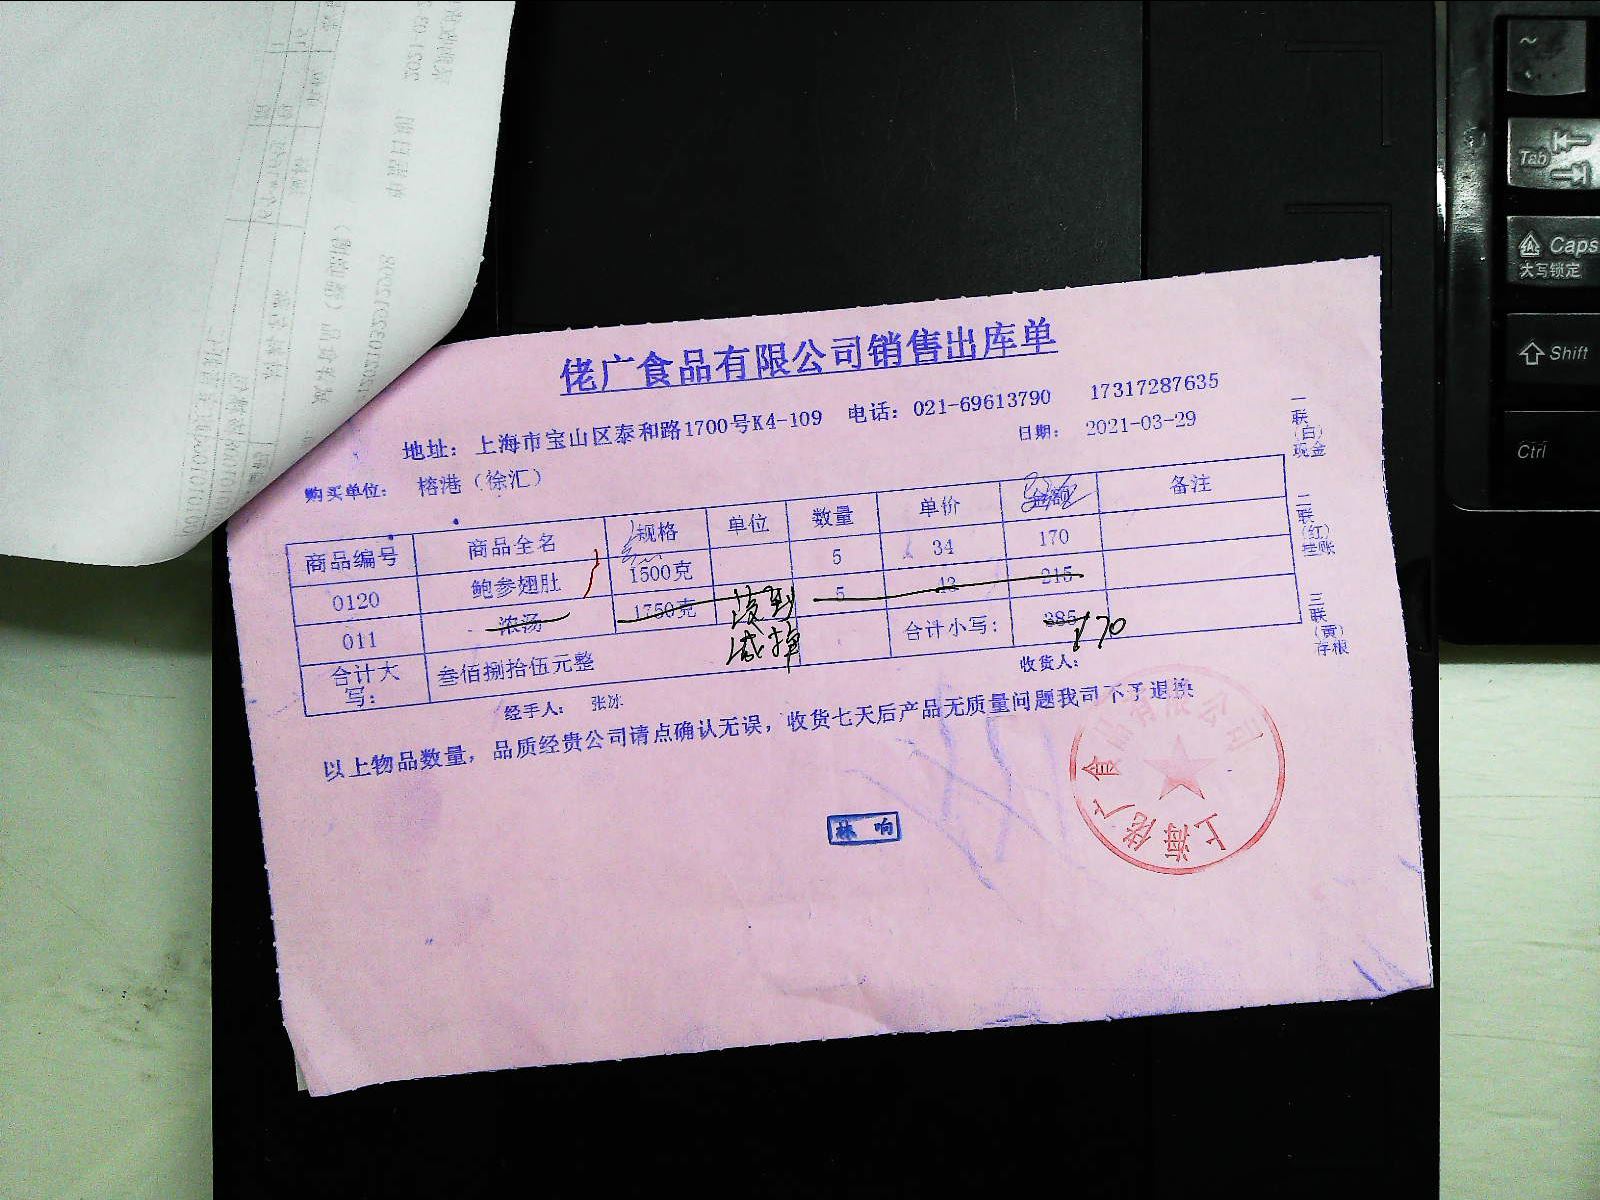 佬广食品有限公司销售出库单
地址: 上海市宝山区泰和路1700号K4-109 电话: 021-69613790 17317287635
日期: 2021-03-29
购买单位: 榕港（徐汇）
商品编号 商品全名 规格 单位 数量 单价 金额 备注
0120 鲍参翅肚 1500克 5 34 170
011 浓汤 1750克 没到 5 43 215
减掉
合计大写: 叁佰捌拾伍元整 合计小写: 385 170
经手人: 张冰 收货人:
以上物品数量, 品质经贵公司请点确认无误, 收货七天后产品无质量问题我司不予退换
一联(白)现金
二联(红)挂账
三联(黄)存根
林响
上海佬广食品有限公司
~
Tab
Caps
大写锁定
Shift
Ctrl